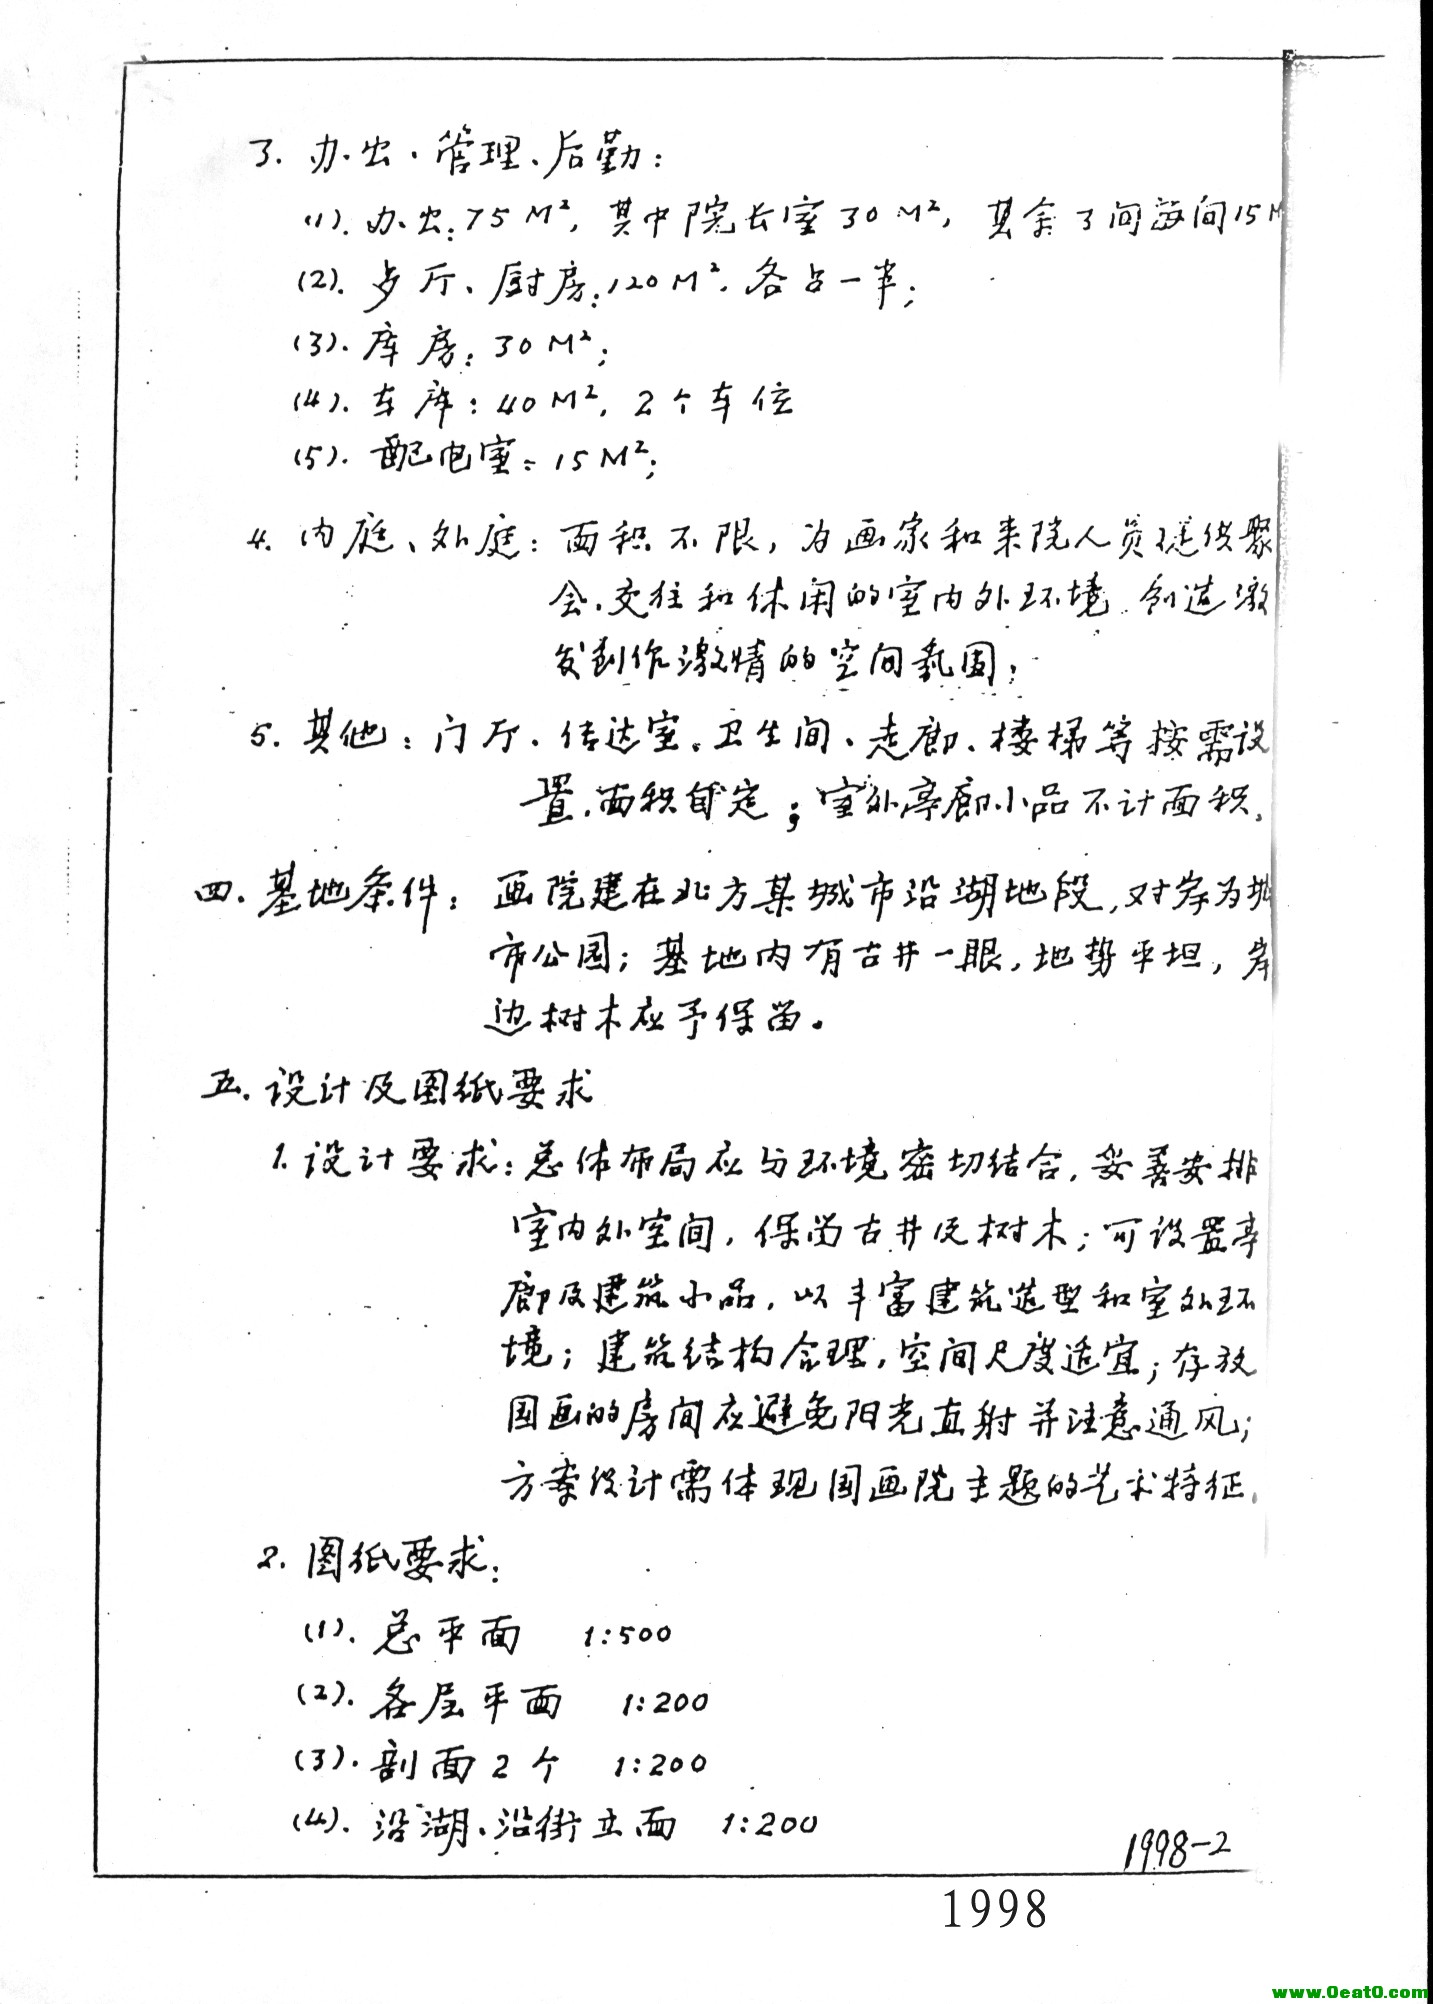 3. 办公、管理、后勤:
(1). 办公: 75 M², 其中院长室 30 M², 其余 3 间每间 15 M
(2). 歺厅、厨房: 120 M², 各占一半;
(3). 库房: 30 M²;
(4). 车库: 40 M², 2个车位
(5). 配电室: 15 M²;
4. 内庭、外庭: 面积不限, 为画家和来院人员提供聚
会、交往和休闲的室内外环境, 创造激
发创作激情的空间氛围;
5. 其他: 门厅、传达室、卫生间、走廊、楼梯等按需设
置, 面积自定; 室外亭廊小品不计面积。
四. 基地条件: 画院建在北方某城市沿湖地段, 对岸为城
市公园; 基地内有古井一眼, 地势平坦, 岸
边树木应予保留。
五. 设计及图纸要求
1. 设计要求: 总体布局应与环境密切结合, 妥善安排
室内外空间, 保留古井及树木; 可设置亭
廊及建筑小品, 以丰富建筑造型和室外环
境; 建筑结构合理, 空间尺度适宜; 存放
国画的房间应避免阳光直射并注意通风;
方案设计需体现国画院主题的艺术特征。
2. 图纸要求:
(1). 总平面 1:500
(2). 各层平面 1:200
(3). 剖面 2 个 1:200
(4). 沿湖、沿街立面 1:200
1998-2
1998
www.0eat0.com